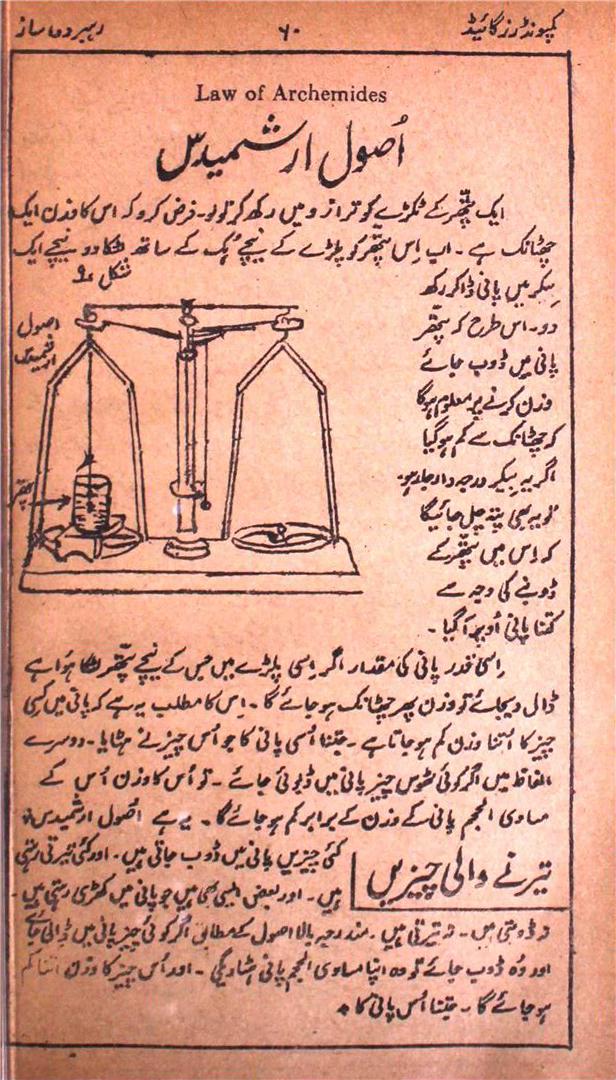 کمپونڈرز گائیڈ
۶۰
رہبر دوا ساز
Law of Archemides
اُصول ارشمیدس
ایک پتھّر کے ٹکڑے کو ترازو میں رکھ کر تولو۔ فرض کرو کہ اس کا وزن ایک
چھٹانک ہے۔ اب اِس پتھّر کو پلڑے کے نیچے ہُک کے ساتھ لٹکا دو نیچے ایک
بیکر میں پانی ڈالکر رکھ
دو۔ اس طرح کہ پتھّر
پانی میں ڈوب جائے
وزن کرنے پر معلوم ہوگا
کہ چھٹانک سے کم ہو گیا
اگر یہ بیکر درجہ دار
تو یہ بھی پتہ چل جائیگا
کہ اِس میں پتھّر کے
ڈوبنے کی وجہ سے
کتنا پانی اُوپر آ گیا۔
شکل
اصول
ارشمیدس
پتھر
اِسی قدر پانی کی مقدار اگر اِسی پلڑے میں جس کے نیچے پتھّر لٹکا ہُوا ہے
ڈال دیجائے تو وزن پھر چھٹانک ہو جائے گا۔ اِس کا مطلب یہ ہے کہ پانی میں کِسی
چیز کا اُتنا وزن کم ہو جاتا ہے۔ جتنا اُسی پانی کا جو اُس چیز نے ہٹایا۔ دوسرے
الفاظ میں اگر کوئی ٹھوس چیز پانی میں ڈبوئی جائے۔ تو اُس کا وزن اُس کے
مساوی الحجم پانی کے وزن کے برابر کم ہو جائے گا۔ یہ ہے اُصول ارشمیدس
تیرنے والی چیزیں
کئی چیزیں پانی میں ڈوب جاتی ہیں۔ اور کئی تیرتی رہتی
ہیں۔ اور بعض ایسی بھی ہیں جو پانی میں کھڑی رہتی ہیں۔
نہ ڈوبتی ہیں۔ نہ تیرتی ہیں۔ مندرجہ بالا اصول کے مطابق اگر کوئی چیز پانی میں ڈالی جائے
اور وُہ ڈوب جائے تو وہ اپنا مساوی الحجم پانی ہٹا دیگی۔ اور اُس چیز کا وزن اتنا کم
ہو جائے گا۔ جتنا اُس پانی کا